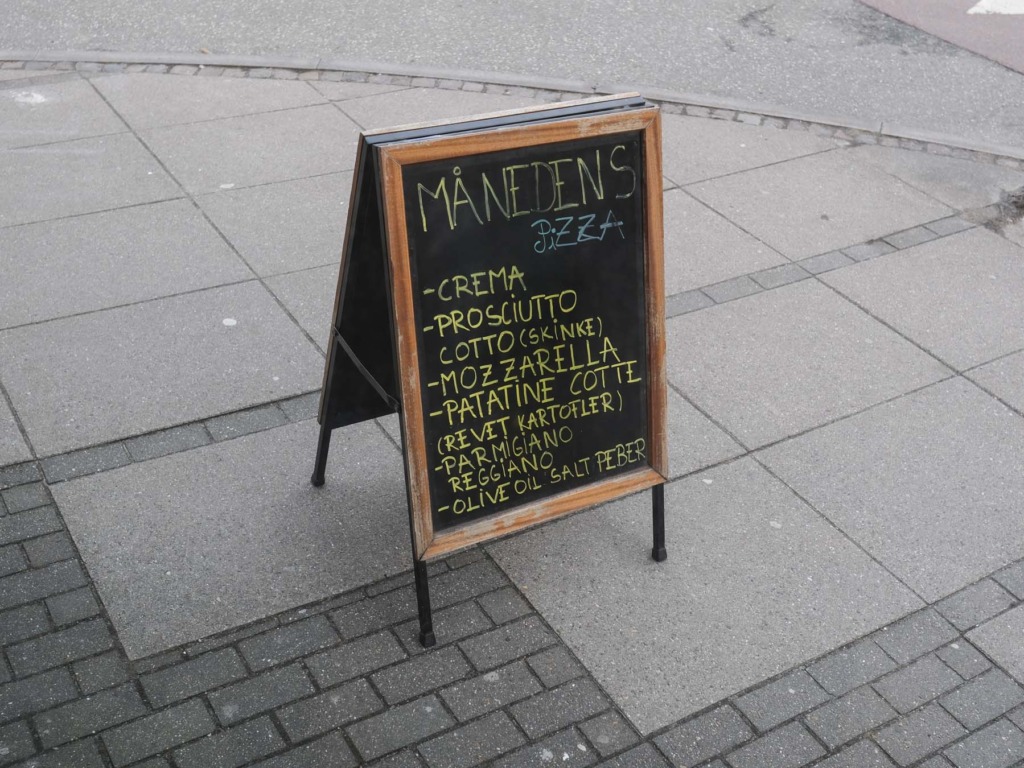 MÅNEDENS
PiZZA
-CREMA
-PROSCiUTTO
COTTO (SKINKE)
-MOZZARELLA
-PATATINE COTTE
(REVET KARTOFLER)
-PARMiGIANO
REGGIANO
-OLIVE OIL SALT PEBER